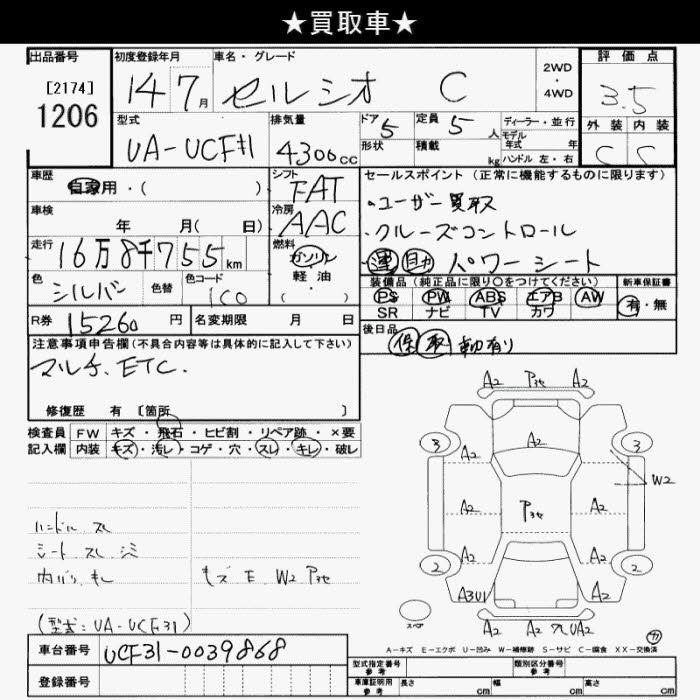 ★買取車★
出品番号 初度登録年月 車名・グレード 2WD ・ 4WD 評価点
[2174] 1206 14 7月 セルシオ C 3.5
型式 排気量 ドア 5 定員 5人 ディーラー・並行 外装 内装
UA-UCF31 4300cc 形状 積載 kg モデル年式 年 C C
ハンドル 左・右
車歴 自家用・( ) シフト FAT セールスポイント (正常に機能するものに限ります)
車検 年 月( 日) 冷房 AAC ・ユーザー買取
・クルーズコントロール
走行 16万8千755km 燃料 ガソリン 軽油 ・( ) 運 助 パワーシート
色 シルバー 色替 色コード 1C0 装備品(純正品に限り○をつけてください) 新車保証書
PS PW ABS エアB AW 有・無
SR ナビ TV カワ
R券 15260円 名変期限 月 日 後日品
注意事項申告欄(不具合内容等は具体的に記入して下さい) 保 取 車内有り
マルチ、ETC.
修復歴 有 [箇所 ]
検査員 FW キズ・飛石・ヒビ割・リペア跡・×要
記入欄 内装 キズ・汚レ・コゲ・穴・スレ・キレ・破レ
A2 Pヨセ A2
3 A2 3
W2
A2 Pヨセ A2
A2 A2
2 A2 A2 2
A3U1 A2
A2 A2 U A2
スペア
ハンドル スレ
シート スレ シミ
内バリ キレ
キズ E W2 Pヨセ
(型式:UA-UCF31)
A-キズ E-エクボ U-凹み W-補修跡 S-サビ C-腐食 XX-交換済
車台番号 UCF31-0039868
登録番号
型式指定番号 参考 類別区分番号 参考
車庫証明用 参考 長さ cm 幅 cm 高さ cm